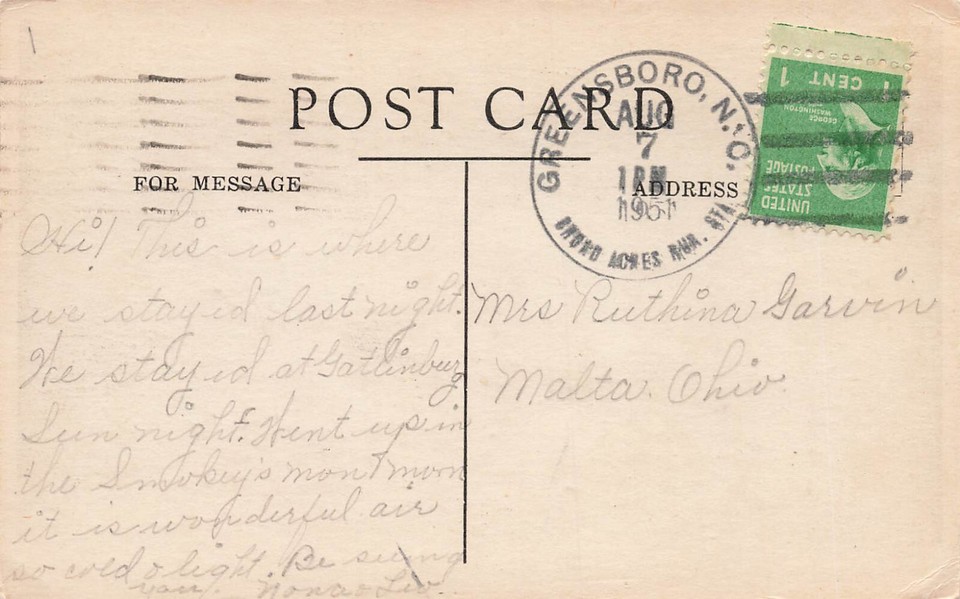 POST CARD
FOR MESSAGE
ADDRESS
GREENSBORO, N.C.
AUG
7
1 PM
1951
BROAD ACRES RUR. STA.
1 CENT 1
GEORGE WASHINGTON
UNITED
STATES
POSTAGE
Hi! This is where
we stayed last night.
We stayed at Gatlinburg
Sun night. Went up in
the Smokey's mon morn
it is wonderful air
so cold & light. Be seeing
you.
Mrs Ruthina Garvin
Malta. Ohio